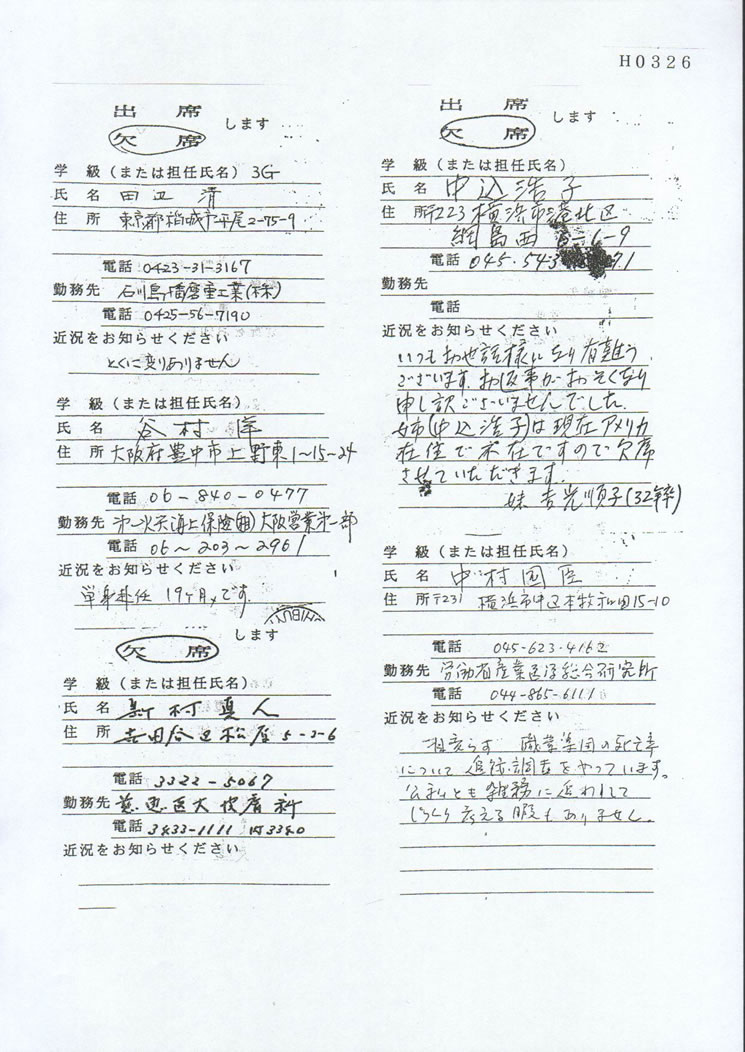 H0326
出 席
欠 席 します
学 級（または担任氏名） 3G
氏 名 田辺 清
住 所 東京都稲城市平尾2-75-9
電話 0423-31-3167
勤務先 石川島播磨重工業(株)
電話 0425-56-7190
近況をお知らせください
とくに変りありません
学 級（または担任氏名）
氏 名 谷村
住 所 大阪府豊中市上野東1〜15-24
電話 06-840-0477
勤務先 大阪営業第一部
電話 06〜203〜2961
近況をお知らせください
単身赴任 19ヶ月〆です。
欠 席 します
学 級（または担任氏名）
氏 名 新村真人
住 所 世田谷区松原5-2-6
電話 3322-5067
勤務先 慈恵医大皮膚科
電話 3433-1111 内3340
近況をお知らせください
出 席
欠 席 します
学 級（または担任氏名）
氏 名 中込浩子
住 所 〒223 横浜市港北区
綱島西 -6-9
電話 045-543 71
勤務先
電話
近況をお知らせください
いつもお世話様になり有難う
ございます。お返事がおそくなり
申し訳ございませんでした。
姉(中込浩子)は現在アメリカ
在住で不在ですので欠席
させていただきます。
妹 吉光順子(32年卒)
学 級（または担任氏名）
氏 名 中村国臣
住 所 〒231 横浜市中区本牧和田15-10
電話 045-623-4162
勤務先 労働省産業医学総合研究所
電話 044-865-6111
近況をお知らせください
相変らず 職業集団の死亡率
について追跡調査をやっています。
公私とも雑務に追われて
じっくり考える暇もありません。